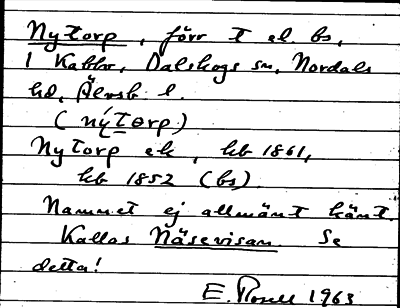 Nytorp, förr t el. bs,
i Kabbo, Dalskogs sn, Nordals
hd, Älvsb. l.
(nýtorp)
Nytorp ek, hb 1861,
hb 1852 (bs)
Namnet ej allmänt känt.
Kallas Näsevisan. Se
detta!
E. 1963